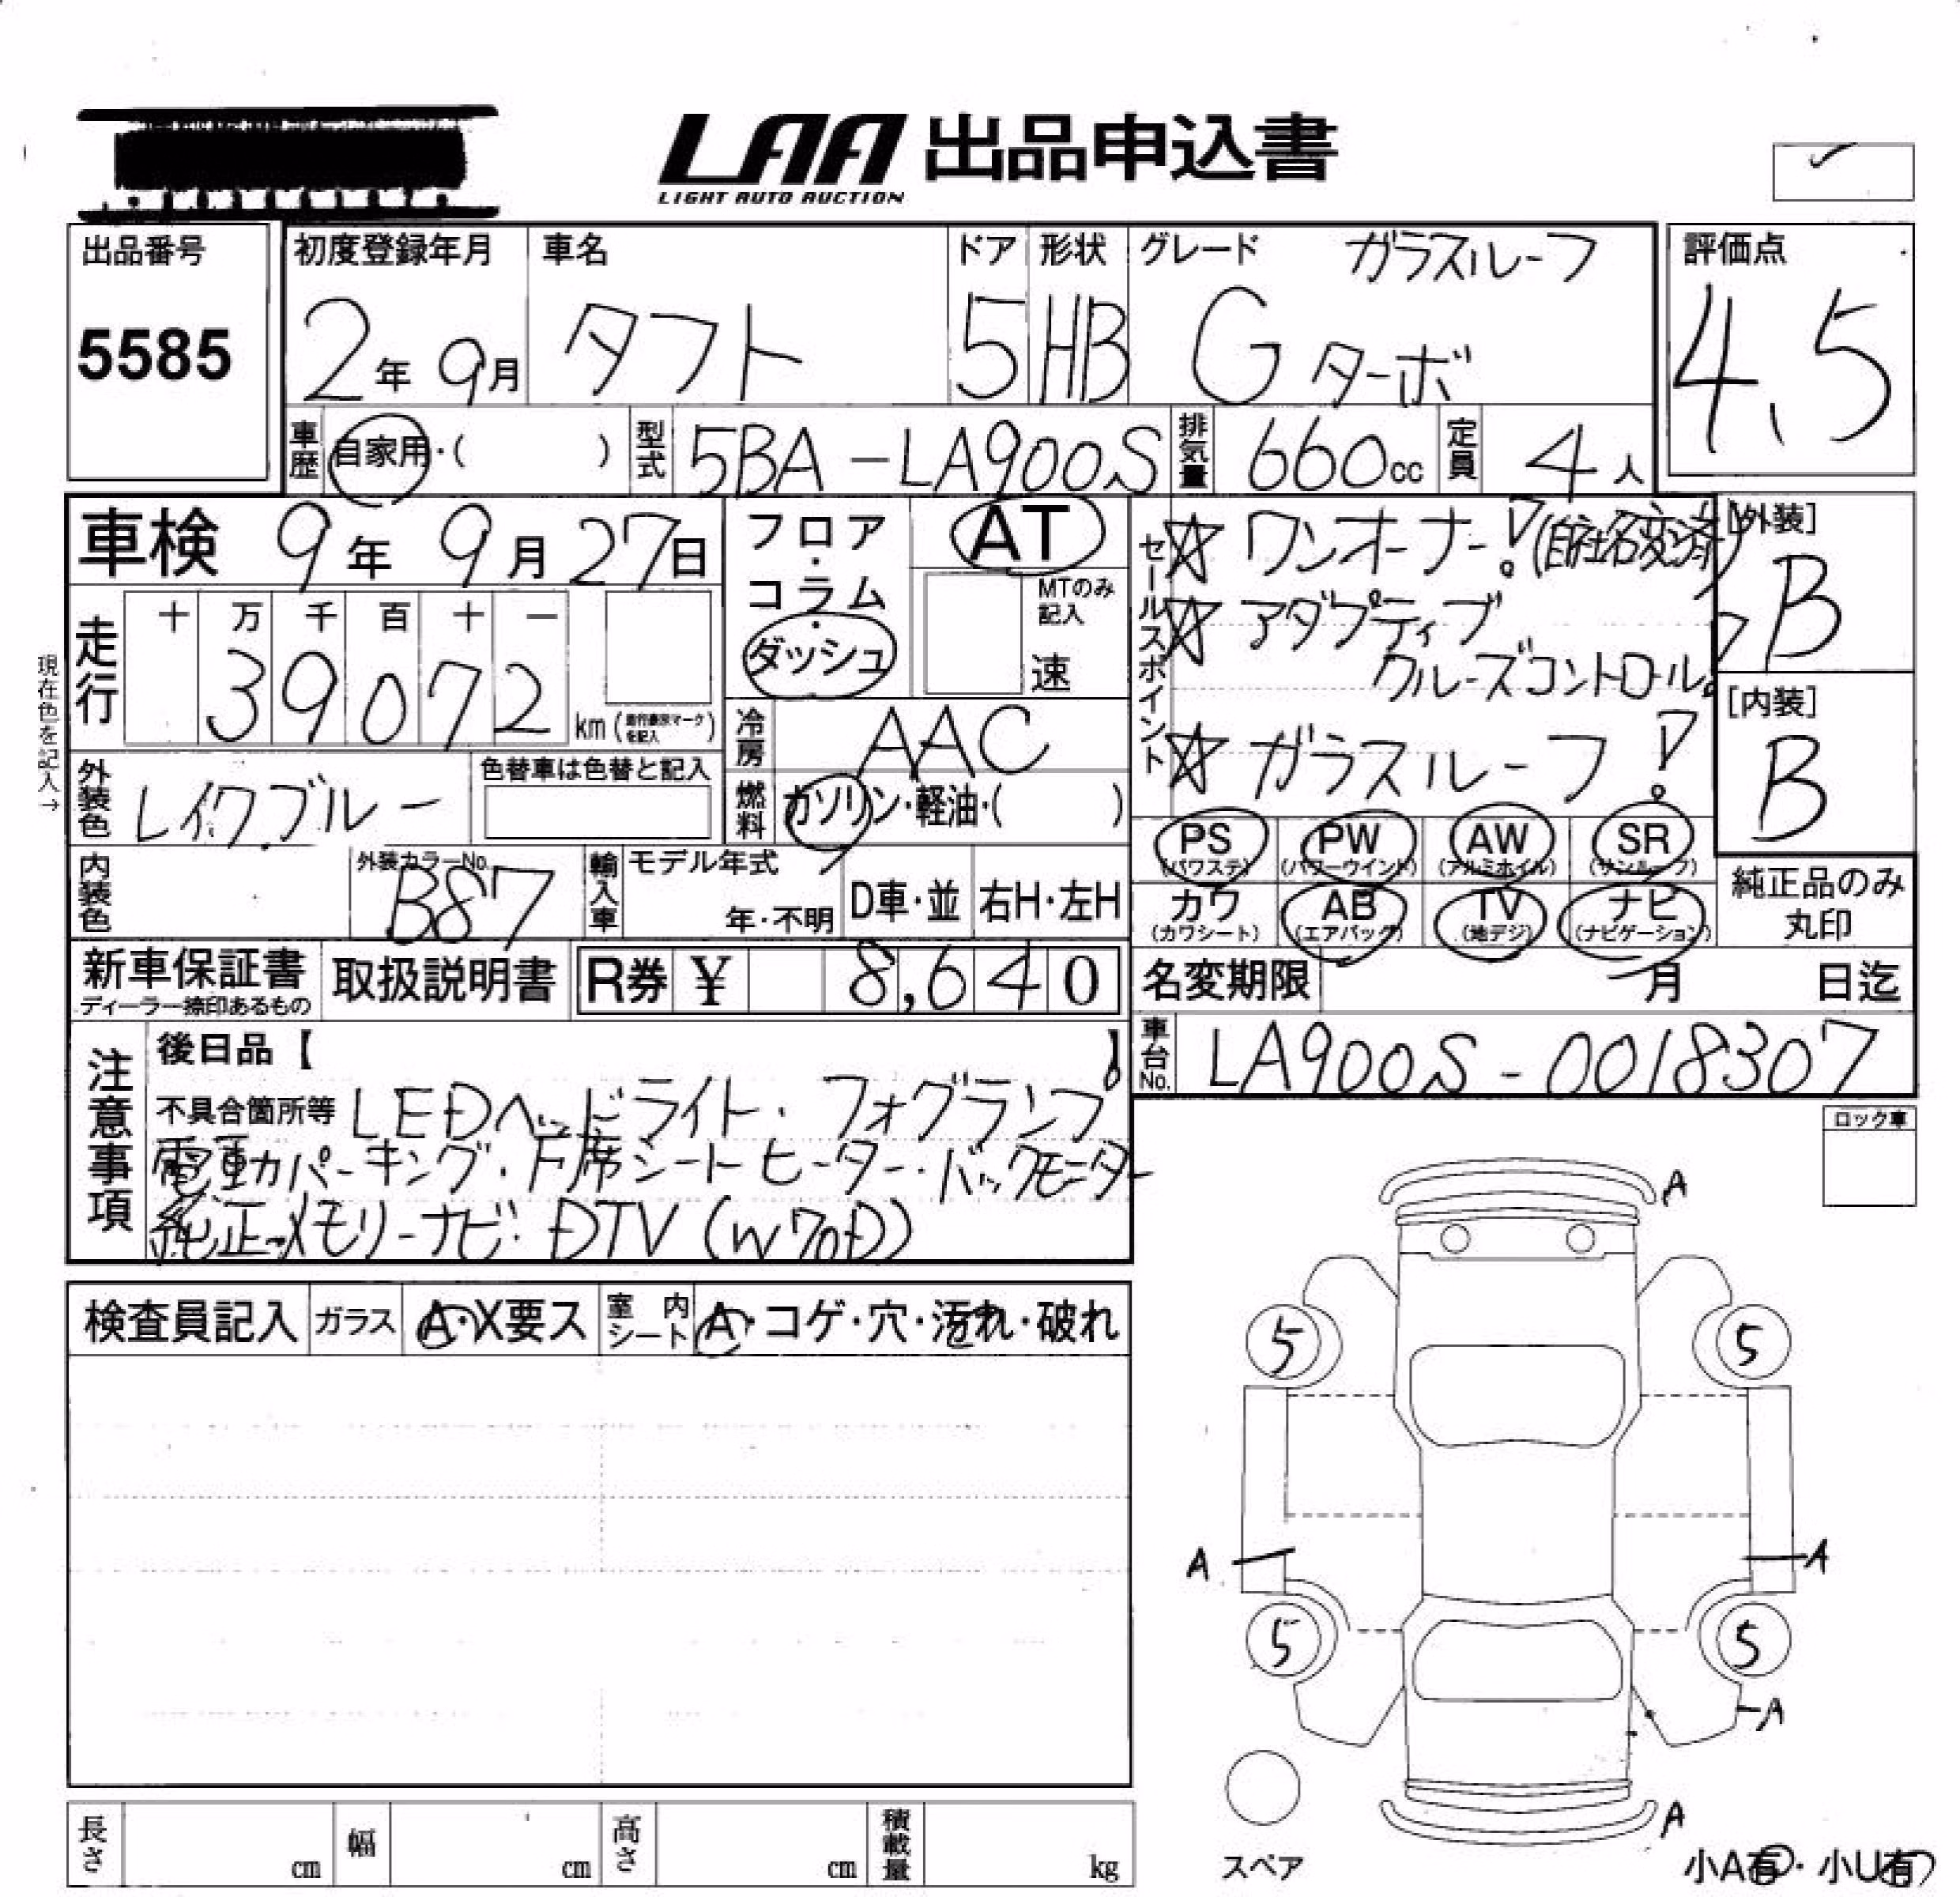 LAA 出品申込書
LIGHT AUTO AUCTION
出品番号
5585
初度登録年月
2年 9月
車名
タフト
ドア
5
形状
HB
グレード
ガラスルーフ
G ターボ
評価点
4.5
車歴
自家用・( )
型式
5BA-LA900S
排気量
660cc
定員
4人
車検 9年 9月 27日
フロア・コラム・ダッシュ
AT
MTのみ記入
速
現在色を記入→
走行
十 万 千 百 十 一
3 9 0 7 2
km (走行表示マークを記入)
冷房
AAC
外装色
レイクブルー
色替車は色替と記入
燃料
ガソリン・軽油・( )
内装色
外装カラーNo.
B87
輸入車
モデル年式
年・不明
D車・並
右H・左H
新車保証書
ディーラー捺印あるもの
取扱説明書
R券 ¥ 8,640
セールスポイント
☆ワンオーナー!(自社名変済)
☆アダプティブ
クルーズコントロール。
☆ガラスルーフ!
[外装]
B
[内装]
B
PS
(パワステ)
PW
(パワーウインド)
AW
(アルミホイル)
SR
(サンルーフ)
カワ
(カワシート)
AB
(エアバッグ)
TV
(地デジ)
ナビ
(ナビゲーション)
純正品のみ
丸印
名変期限 月 日迄
車台No.
LA900S-0018307
注意事項
後日品【 】
不具合箇所等 LEDヘッドライト・フォグランプ
電動パーキング・下席シートヒーター・バックモニター
純正メモリーナビ・DTV(W70D)
ロック車
検査員記入
ガラス
A・X要ス
室内シート
A・コゲ・穴・汚れ・破れ
A
5
5
A
A
5
5
A
A
スペア
小A有・小U有
長さ cm
幅 cm
高さ cm
積載量 kg